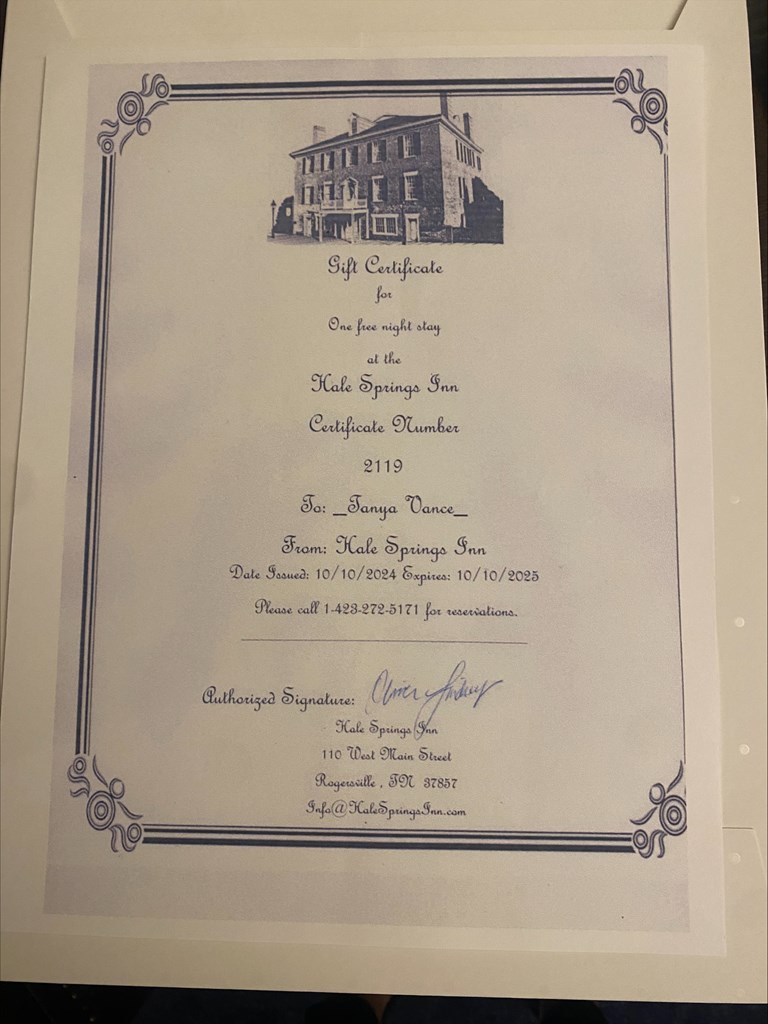 Gift Certificate
for
One free night stay
at the
Hale Springs Inn
Certificate Number
2119
To: _Tanya Vance_
From: Hale Springs Inn
Date Issued: 10/10/2024 Expires: 10/10/2025
Please call 1-423-272-5171 for reservations.
Authorized Signature:
Hale Springs Inn
110 West Main Street
Rogersville , TN 37857
Info@HaleSpringsInn.com